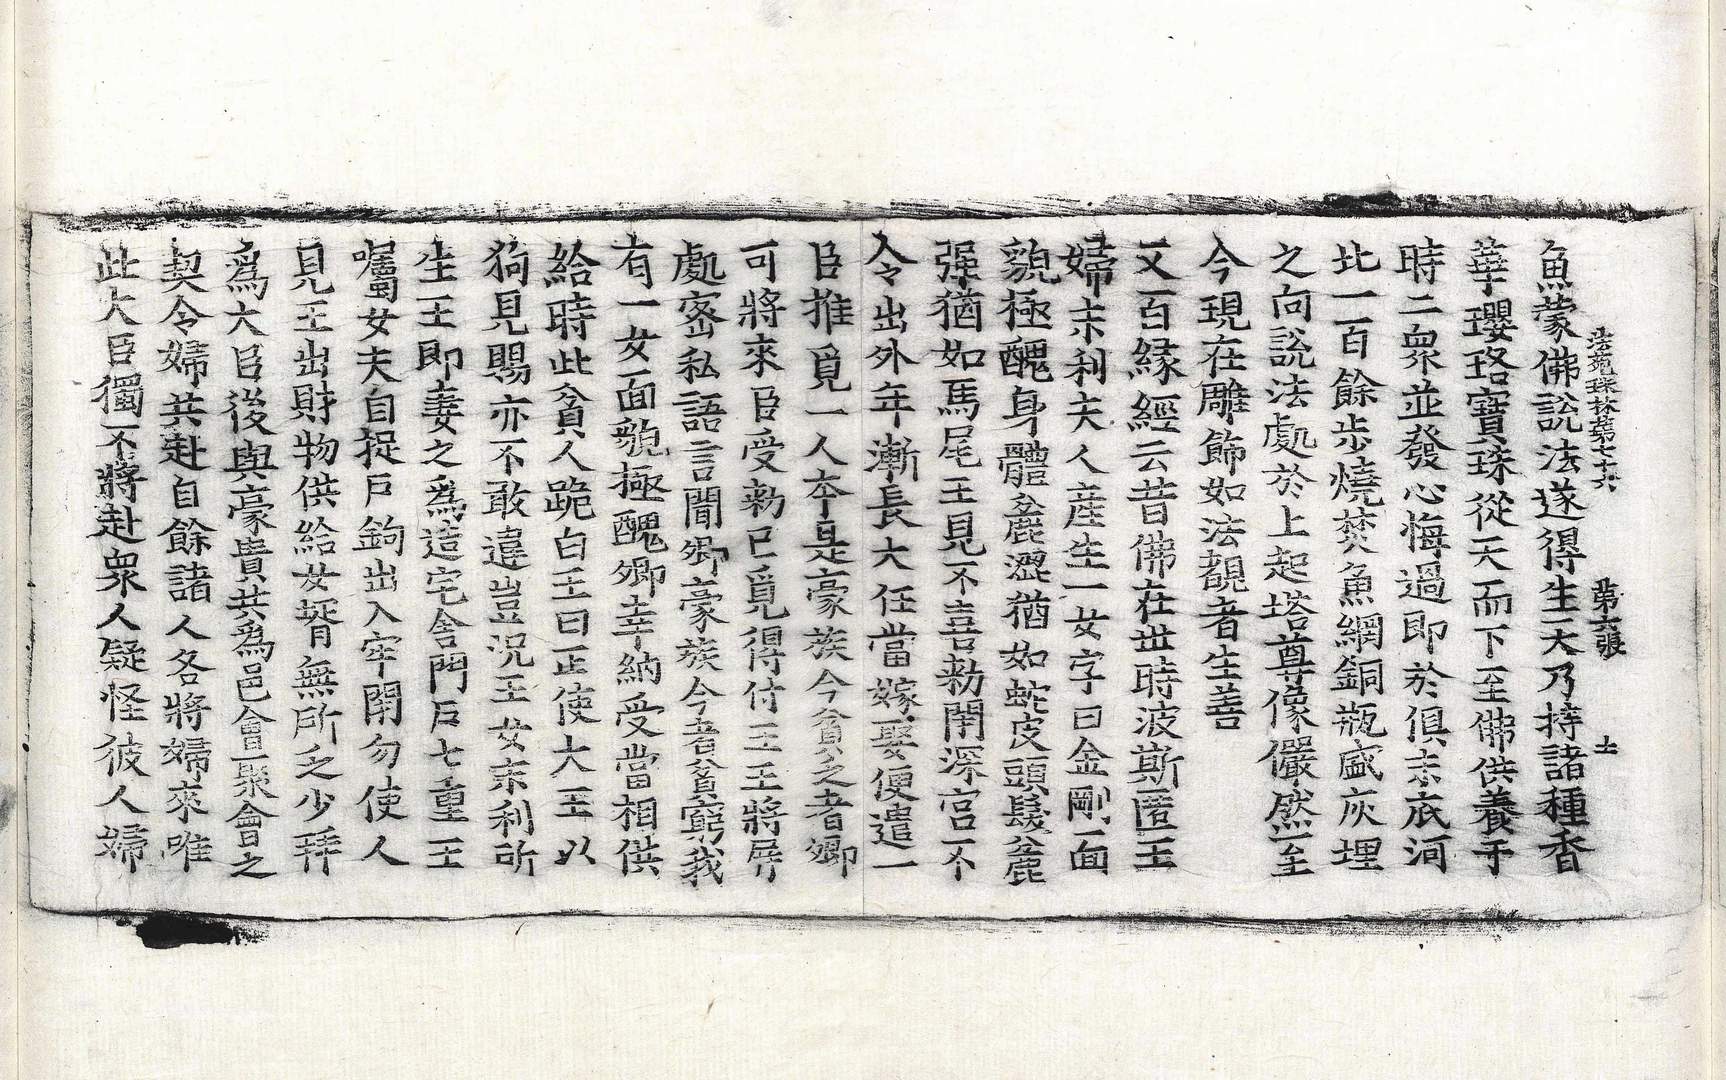 法苑珠林第七十六　第六張　士
魚蒙佛說法遂得生天乃持諸種香
華瓔珞寶珠從天而下至佛供養于
時二衆並發心悔過即於俱末底河
北一百餘步燒焚魚網銅瓶盛灰埋
之向說法處於上起塔尊像儼然至
今現在雕飾如法覩者生善
又百緣經云昔佛在世時波斯匿王
婦末利夫人産生一女字曰金剛面
貌極醜身體麁澀猶如蛇皮頭髮麁
强猶如馬尾王見不喜勑閉深宮不
令出外年漸長大任當嫁娶便遣一
臣推覓一人本是豪族今貧乏者卿
可將來臣受勑已覓得付王王將屏
處密私語言聞卿豪族今者貧窮我
有一女面貌極醜卿幸納受當相供
給時此貧人跪白王曰正使大王以
狗見賜亦不敢違豈況王女末利所
生王即妻之爲造宅舍門戶七重王
囑女夫自捉戶鉤出入牢閉勿使人
見王出財物供給女壻無所乏少拜
爲大臣後與豪貴共爲邑會聚會之
契令婦共赴自餘諸人各將婦來唯
此大臣獨不將赴衆人疑怪彼人婦